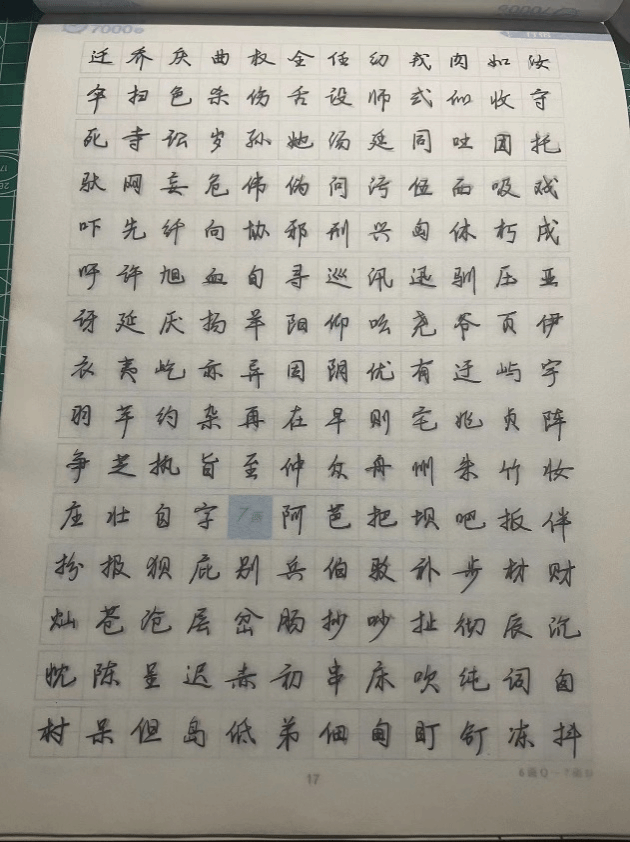 7000
迁乔庆曲权全任幼戎肉如汝
伞扫色杀伤舌设师式似收守
死寺讼岁孙她汤廷同吐团托
驮网妄危伟伪问污伍西吸戏
吓先纤向协邪刑兴匈休朽戌
吁许旭血旬寻巡汛迅驯压亚
讶延厌扬羊阳仰吆尧爷页伊
衣夷屹亦异因阴优有迂屿宇
羽芋约杂再在早则宅兆贞阵
争芝执旨至仲众舟州朱竹妆
庄壮自字7画阿芭把坝吧扳伴
扮报狈庇别兵伯驳补步材财
灿苍沧层岔肠抄吵扯彻辰沉
忱陈呈迟赤初串床吹纯词囱
村呆但岛低弟佃甸盯钉冻抖
17